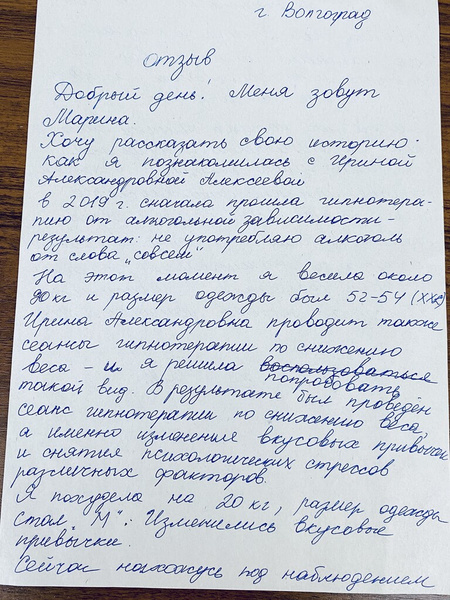 г Волгоград
отзыв
Добрый день! Меня зовут
Марина.
Хочу рассказать свою историю.
как я познакомилась с Ириной
Александровной Алексеевой
в 2019 г. сначала прошла гипнотера-
пию от алкогольной зависимости -
результат: не употребляю алкоголь
от слова „совсем"
На этот момент я весела около
90 кг и размер одежды был 52-54 (XXL)
Ирина Александровна проводит также
сеансы гипнотерапии по снижению
веса - и я решила воспользоваться
попробовать
такой вид. В результате был проведён
сеанс гипнотерапии по снижению веса,
а именно изменение вкусовых привычек
и снятия психологических стрессов
различных факторов.
Я похудела на 20 кг, размер одежды
стал „М". Изменились вкусовые
привычки.
Сейчас нахожусь под наблюдением